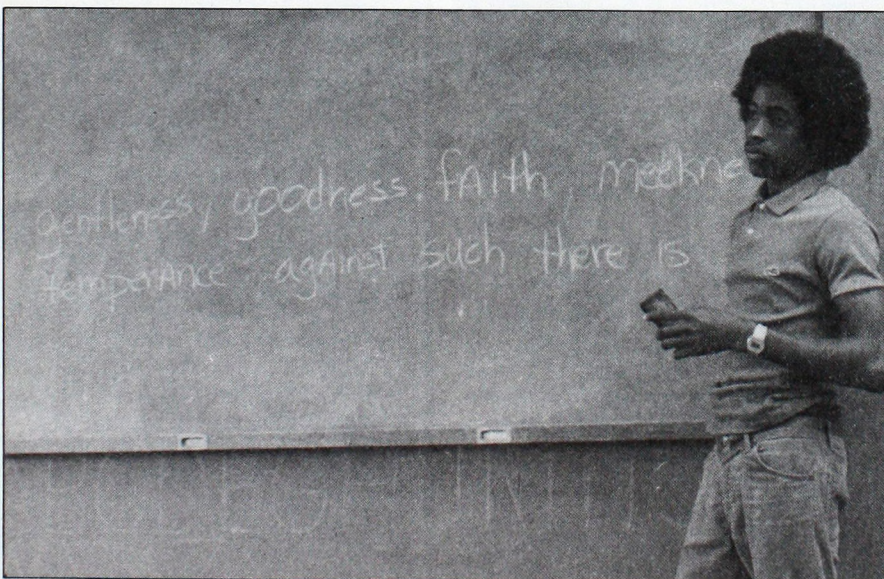 gentleness, goodness. fAith, meekne
temperAnce against such there is